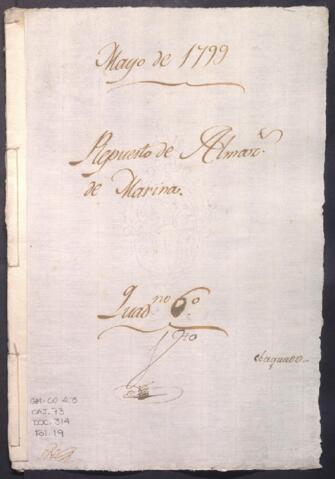 Mayo de 1799
Repuesto de Almaz.^s
de Marina.
Quad.^no 6.^o
GM-CO A3
CAJ. 73
DOC. 314
Fol. 19